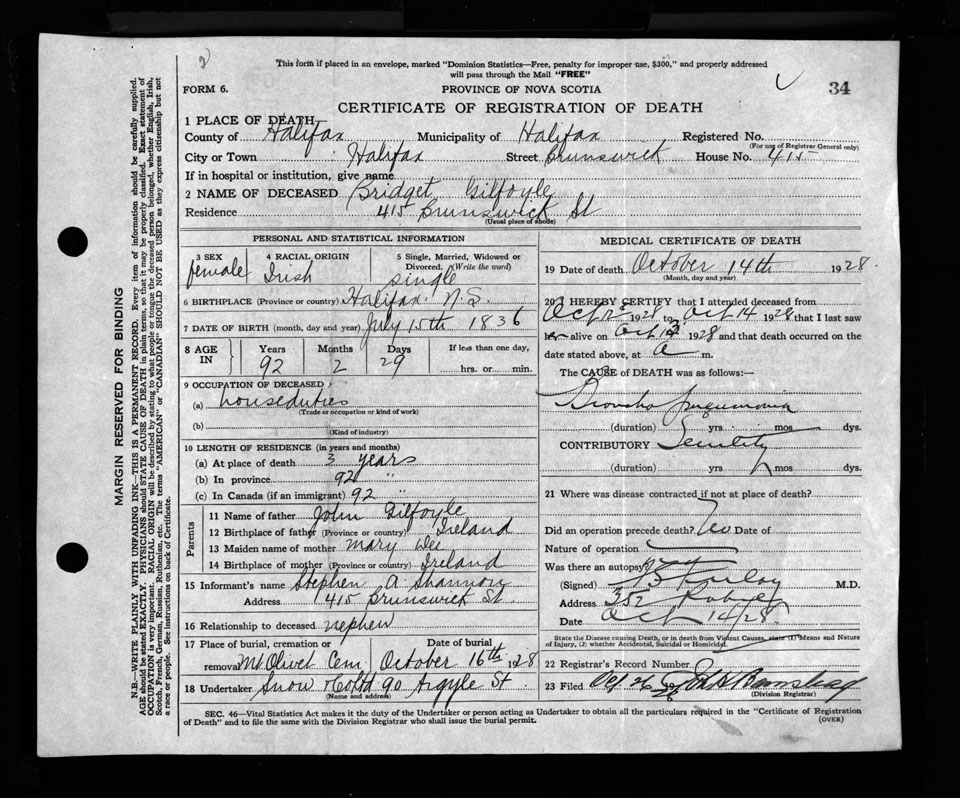 2
This form if placed in an envelope, marked "Dominion Statistics—Free, penalty for improper use, $300," and properly addressed
will pass through the Mail "FREE"
34
FORM 6.
PROVINCE OF NOVA SCOTIA
CERTIFICATE OF REGISTRATION OF DEATH
1 PLACE OF DEATH
County of Halifax Municipality of Halifax Registered No.
(For use of Registrar General only)
City or Town Halifax Street Brunswick House No. 415
If in hospital or institution, give name
2 NAME OF DECEASED Bridget Gilfoyle
Residence 415 Brunswick St
(Usual place of abode)
PERSONAL AND STATISTICAL INFORMATION
3 SEX 4 RACIAL ORIGIN 5 Single, Married, Widowed or
Divorced. (Write the word)
female Irish single
6 BIRTHPLACE (Province or country) Halifax N.S.
7 DATE OF BIRTH (month, day and year) July 15th 1836
8 AGE IN Years Months Days If less than one day,
92 2 29 hrs. or min.
9 OCCUPATION OF DECEASED
(a) houseduties
(Trade or occupation or kind of work)
(b)
(Kind of industry)
10 LENGTH OF RESIDENCE (in years and months)
(a) At place of death 3 years
(b) In province 92 "
(c) In Canada (if an immigrant) 92 "
Parents
11 Name of father John Gilfoyle
12 Birthplace of father (Province or country) Ireland
13 Maiden name of mother Mary
14 Birthplace of mother (Province or country) Ireland
15 Informant's name Stephen A Shannon
Address 415 Brunswick St
16 Relationship to deceased nephew
17 Place of burial, cremation or Date of burial
removal Mt Olivet Cem. October 16th 1928
18 Undertaker Snow & Co Ltd 90 Argyle St
(Name and address)
MEDICAL CERTIFICATE OF DEATH
19 Date of death October 14th 1928.
(Month, day and year)
20 I HEREBY CERTIFY that I attended deceased from
Oct 1928 to Oct 14 1928 that I last saw
her alive on Oct 13 1928 and that death occurred on the
date stated above, at a m.
The CAUSE of DEATH was as follows:—
Broncho pneumonia
(duration) yrs. mos. dys.
CONTRIBUTORY Senility
(duration) yrs. mos. dys.
21 Where was disease contracted if not at place of death?
Did an operation precede death? No Date of
Nature of operation
Was there an autopsy?
(Signed) M.D.
Address 352
Date Oct 14/28.
State the Disease causing Death, or in death from Violent Causes, state (1) Means and Nature
of Injury, (2) whether Accidental, Suicidal or Homicidal.
22 Registrar's Record Number
23 Filed Oct 26
(Division Registrar)
SEC. 46—Vital Statistics Act makes it the duty of the Undertaker or person acting as Undertaker to obtain all the particulars required in the "Certificate of Registration
of Death" and to file the same with the Division Registrar who shall issue the burial permit.
(OVER)
MARGIN RESERVED FOR BINDING
N.B.—WRITE PLAINLY WITH UNFADING INK—THIS IS A PERMANENT RECORD. Every item of information should be carefully supplied.
AGE should be stated EXACTLY. PHYSICIANS should STATE CAUSE OF DEATH in plain terms, so that it may be properly classified. Exact statement of
OCCUPATION is very important. RACIAL ORIGIN will be described by stating to what people or tongue the deceased person belonged, whether English, Irish,
Scotch, French, German, Russian, Ruthenian, etc. The terms "AMERICAN" or "CANADIAN" SHOULD NOT BE USED as they express citizenship but not
a race or people. See instructions on back of Certificate.